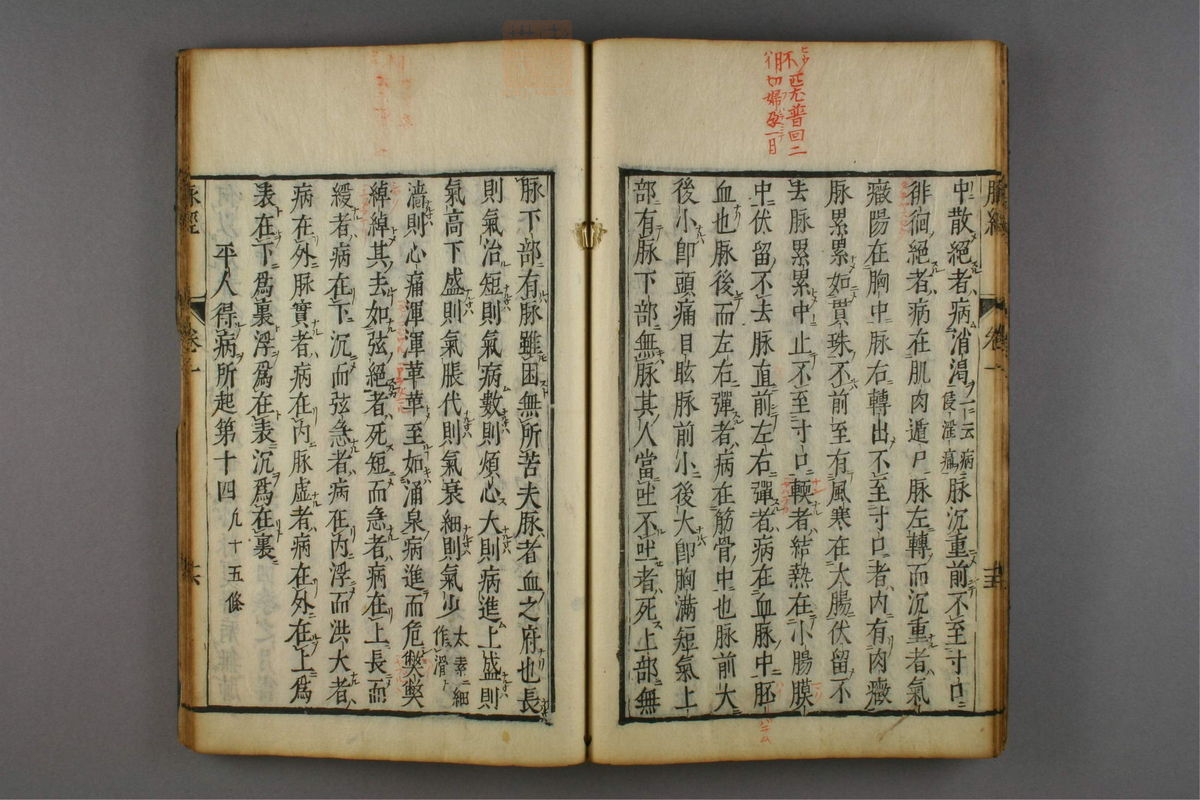 不 䏽普回二
切婦孕一月
脉經 卷一 十五
中散絕者病消渴一云病浸淫瘧脉沉重前不至寸口
徘徊絕者病在肌肉遁尸脉左轉而沉重者氣
癥陽在胸中脉右轉出不至寸口者内有肉癥
脉累累如貫珠不前至有風寒在大腸伏留不
去脉累累中止不至寸口輭者結熱在小腸膜
中伏留不去脉直前左右彈者病在血脉中胚
血也脉後而左右彈者病在筋骨中也脉前大
後小即頭痛目眩脉前小後大即胸滿短氣上
部有脉下部無脉其人當吐不吐者死上部無
脉下部有脉雖困無所苦夫脉者血之府也長
則氣治短則氣病數則煩心大則病進上盛則
氣高下盛則氣脹代則氣衰細則氣少太素細作滑
濇則心痛渾渾革革至如涌泉病進而危弊弊
綽綽其去如弦絕者死短而急者病在上長而
緩者病在下沉而弦急者病在内浮而洪大者
病在外脉實者病在内脉虛者病在外在上爲
表在下爲裏浮爲在表沉爲在裏
平人得病所起第十四 凡十五條
脉經 卷一 十六